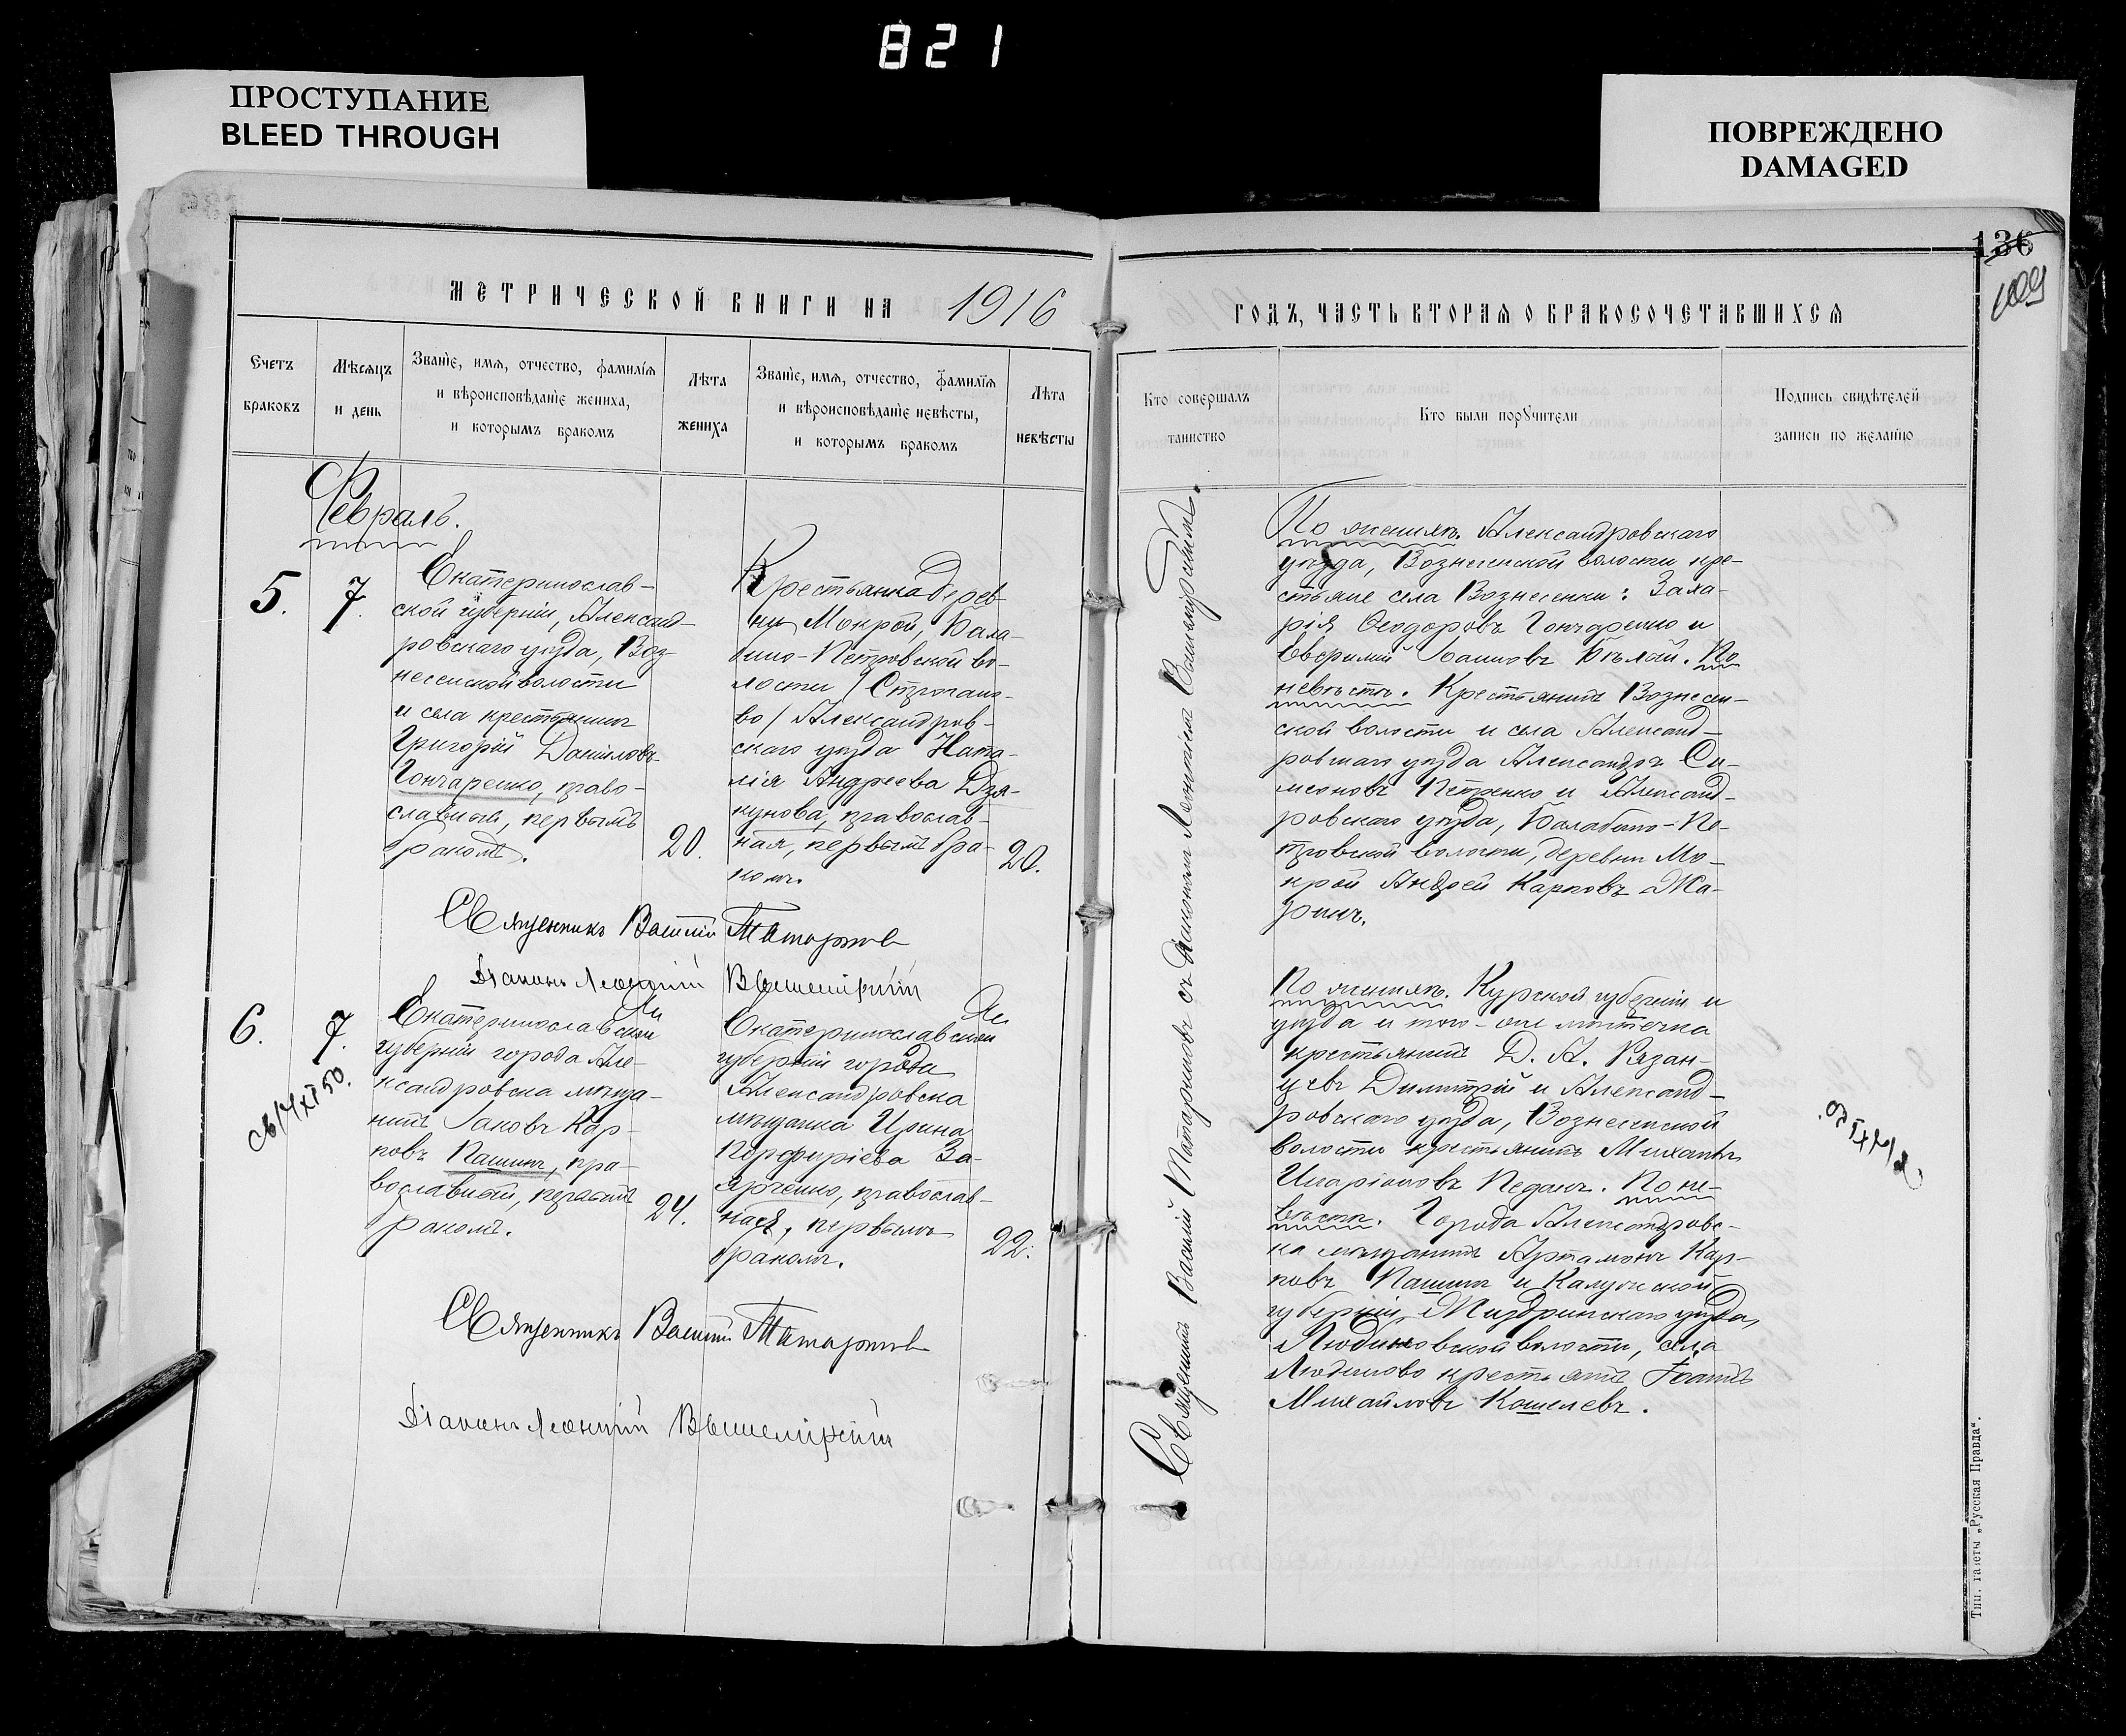 821
ПРОСТУПАНИЕ
BLEED THROUGH
ПОВРЕЖДЕНО
DAMAGED
136
109
МЕТРИЧЕСКОЙ КНИГИ НА 1916
Счетъ браковъ
Мѣсяцъ и день
Званіе, имя, отчество, фамилія
и вѣроисповѣданіе жениха,
и которымъ бракомъ
Лѣта
жениха
Званіе, имя, отчество, фамилія
и вѣроисповѣданіе невѣсты,
и которымъ бракомъ
Лѣта
невѣсты
Февраль.
5.
7.
Екатеринослав-
ской губерніи, Александ-
ровскаго уѣзда, Воз-
несенской волости
и села крестьянинъ
Григорій Даниловъ
Гончаренко, право-
славный, первымъ
бракомъ.
20.
Крестьянка дерев
ни Мокрой, Бала-
бино-Петровской во-
лости /Строгано-
во/ Александров-
скаго уѣзда Ната-
лія Андреева Дзя-
кунова, православ-
ная, первымъ бра-
комъ.
20.
Священникъ Василій Татариновъ
Діаконъ Леонтій Вышемірскій
6.
7.
св/14 XI 50.
Екатеринославской
губерніи города Але-
ксандровска мѣща-
нинъ Іаковъ Кар-
повъ Пашинъ, пра-
вославный, первымъ
бракомъ.
24.
Екатеринославской
губерніи города
Александровска
мѣщанка Ирина
Порфиріева За-
ярченко, православ-
ная, первымъ
бракомъ.
22.
Священникъ Василій Татариновъ
Діаконъ Леонтій Вышемірскій
ГОДЪ, ЧАСТЬ ВТОРАЯ О БРАКОСОЧЕТАВШИХСЯ
Кто совершалъ
таинство
Кто были поручители
Подпись свидѣтелей
записи по желанію
Священникъ Василій Татариновъ съ діакономъ Леонтіемъ Вышемірскимъ.
По женихѣ. Александровскаго
уѣзда, Вознесенской волости кре-
стьяне села Вознесенки: Заха-
рія Ѳеодоровъ Гончаренко и
Евфимій Іоанновъ Бѣлай. По
невѣстѣ. Крестьянинъ Вознесен-
ской волости и села Александ-
ровскаго уѣзда Александръ Си-
меоновъ Петренко и Александ-
ровскаго уѣзда, Балабино-Пе-
тровской волости, деревни Мо-
крой Андрей Карповъ Жа-
ринъ.
По женихѣ. Курской губерніи и
уѣзда и того-же мѣстечка
крестьянинъ Д. А. Рязан-
цевъ Димитрій и Александ-
ровскаго уѣзда, Вознесенской
волости крестьянинъ Михаилъ
Иларіоновъ Педанъ. По не-
вѣстѣ. Города Александровс-
ка мѣщанинъ Артамонъ Кар-
повъ Пашинъ и Калужской
губерніи, Жиздринскаго уѣзда,
Людиновской волости, села
Людиново крестьянинъ Іоаннъ
Михайловъ Кошелевъ.
Тип. газеты „Русская Правда“.